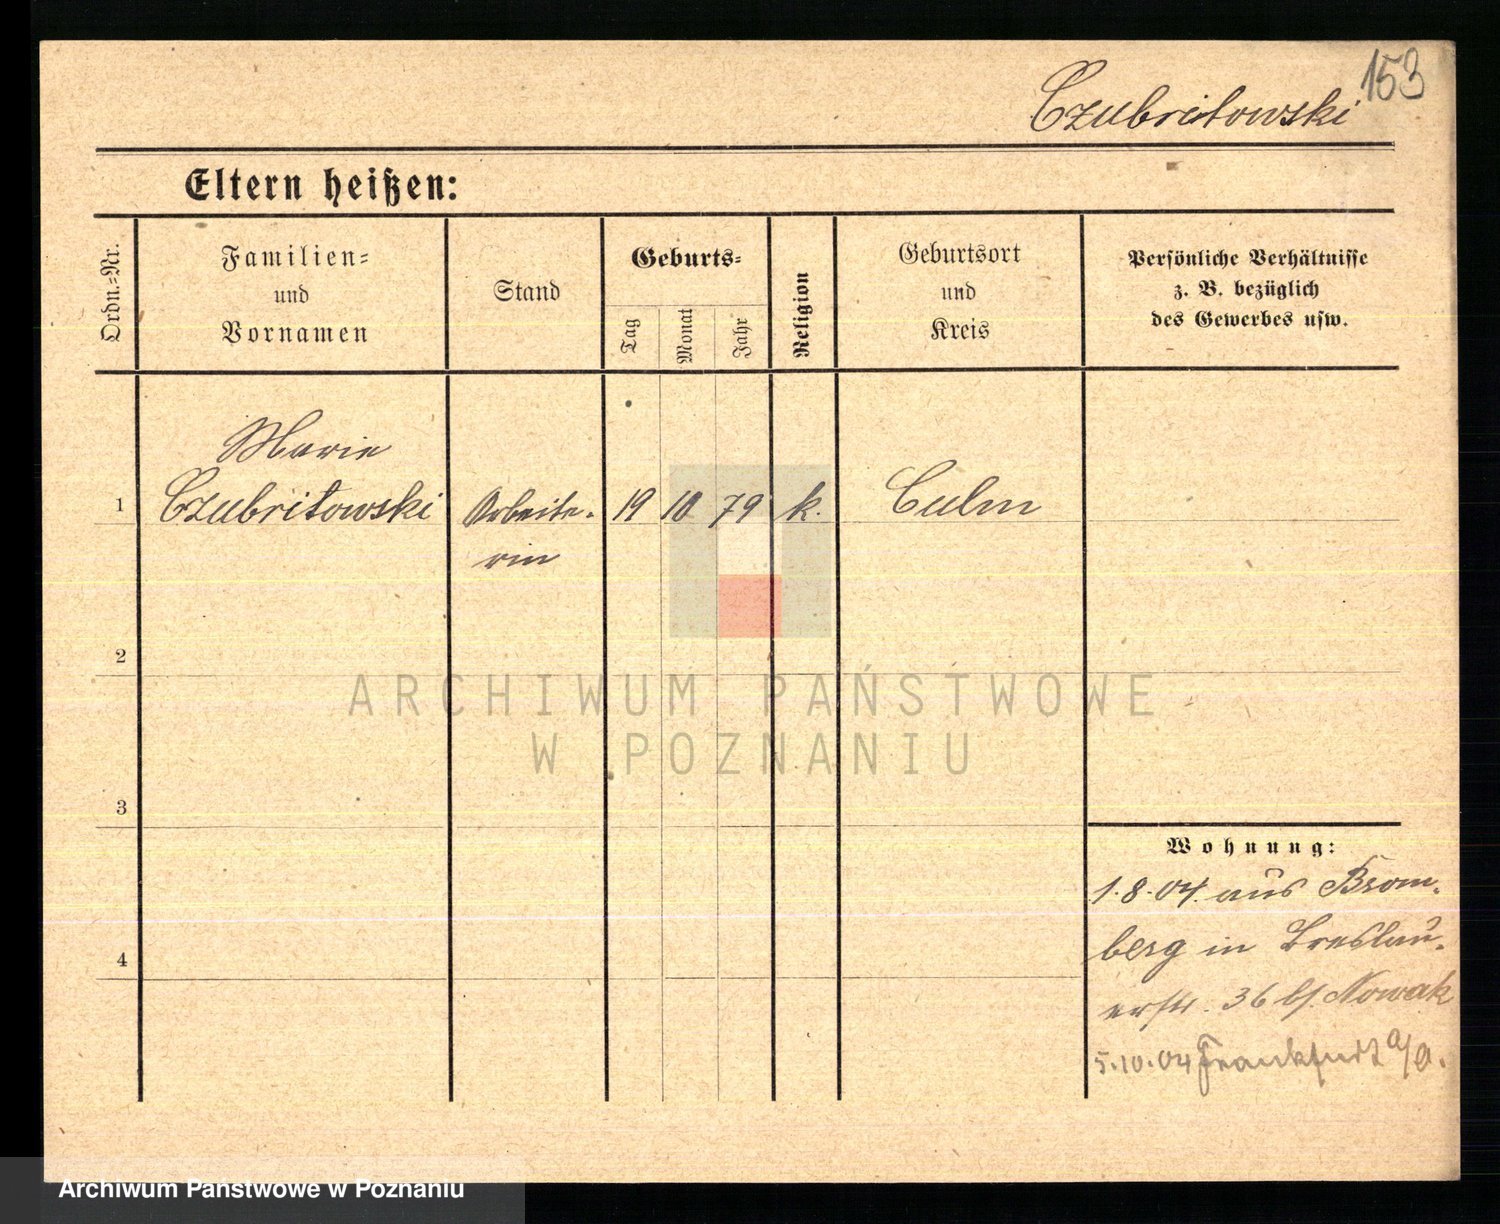 153
Czubritowski
Eltern heißen:
Ordn.=Nr.
Familien=
und
Vornamen
Stand
Geburts=
Tag
Monat
Jahr
Religion
Geburtsort
und
Kreis
Persönliche Verhältnisse
z. B. bezüglich
des Gewerbes usw.
Marie
1 Czubritowski Arbeite- 19 10 79 k. Culm
rin
2
ARCHIWUM PAŃSTWOWE
W POZNANIU
3
Wohnung:
1.8.04. aus Brom-
berg in Breslau-
4
erstr. 36 b/. Nowak
5.10.04 Frankfurt a/O.
Archiwum Państwowe w Poznaniu